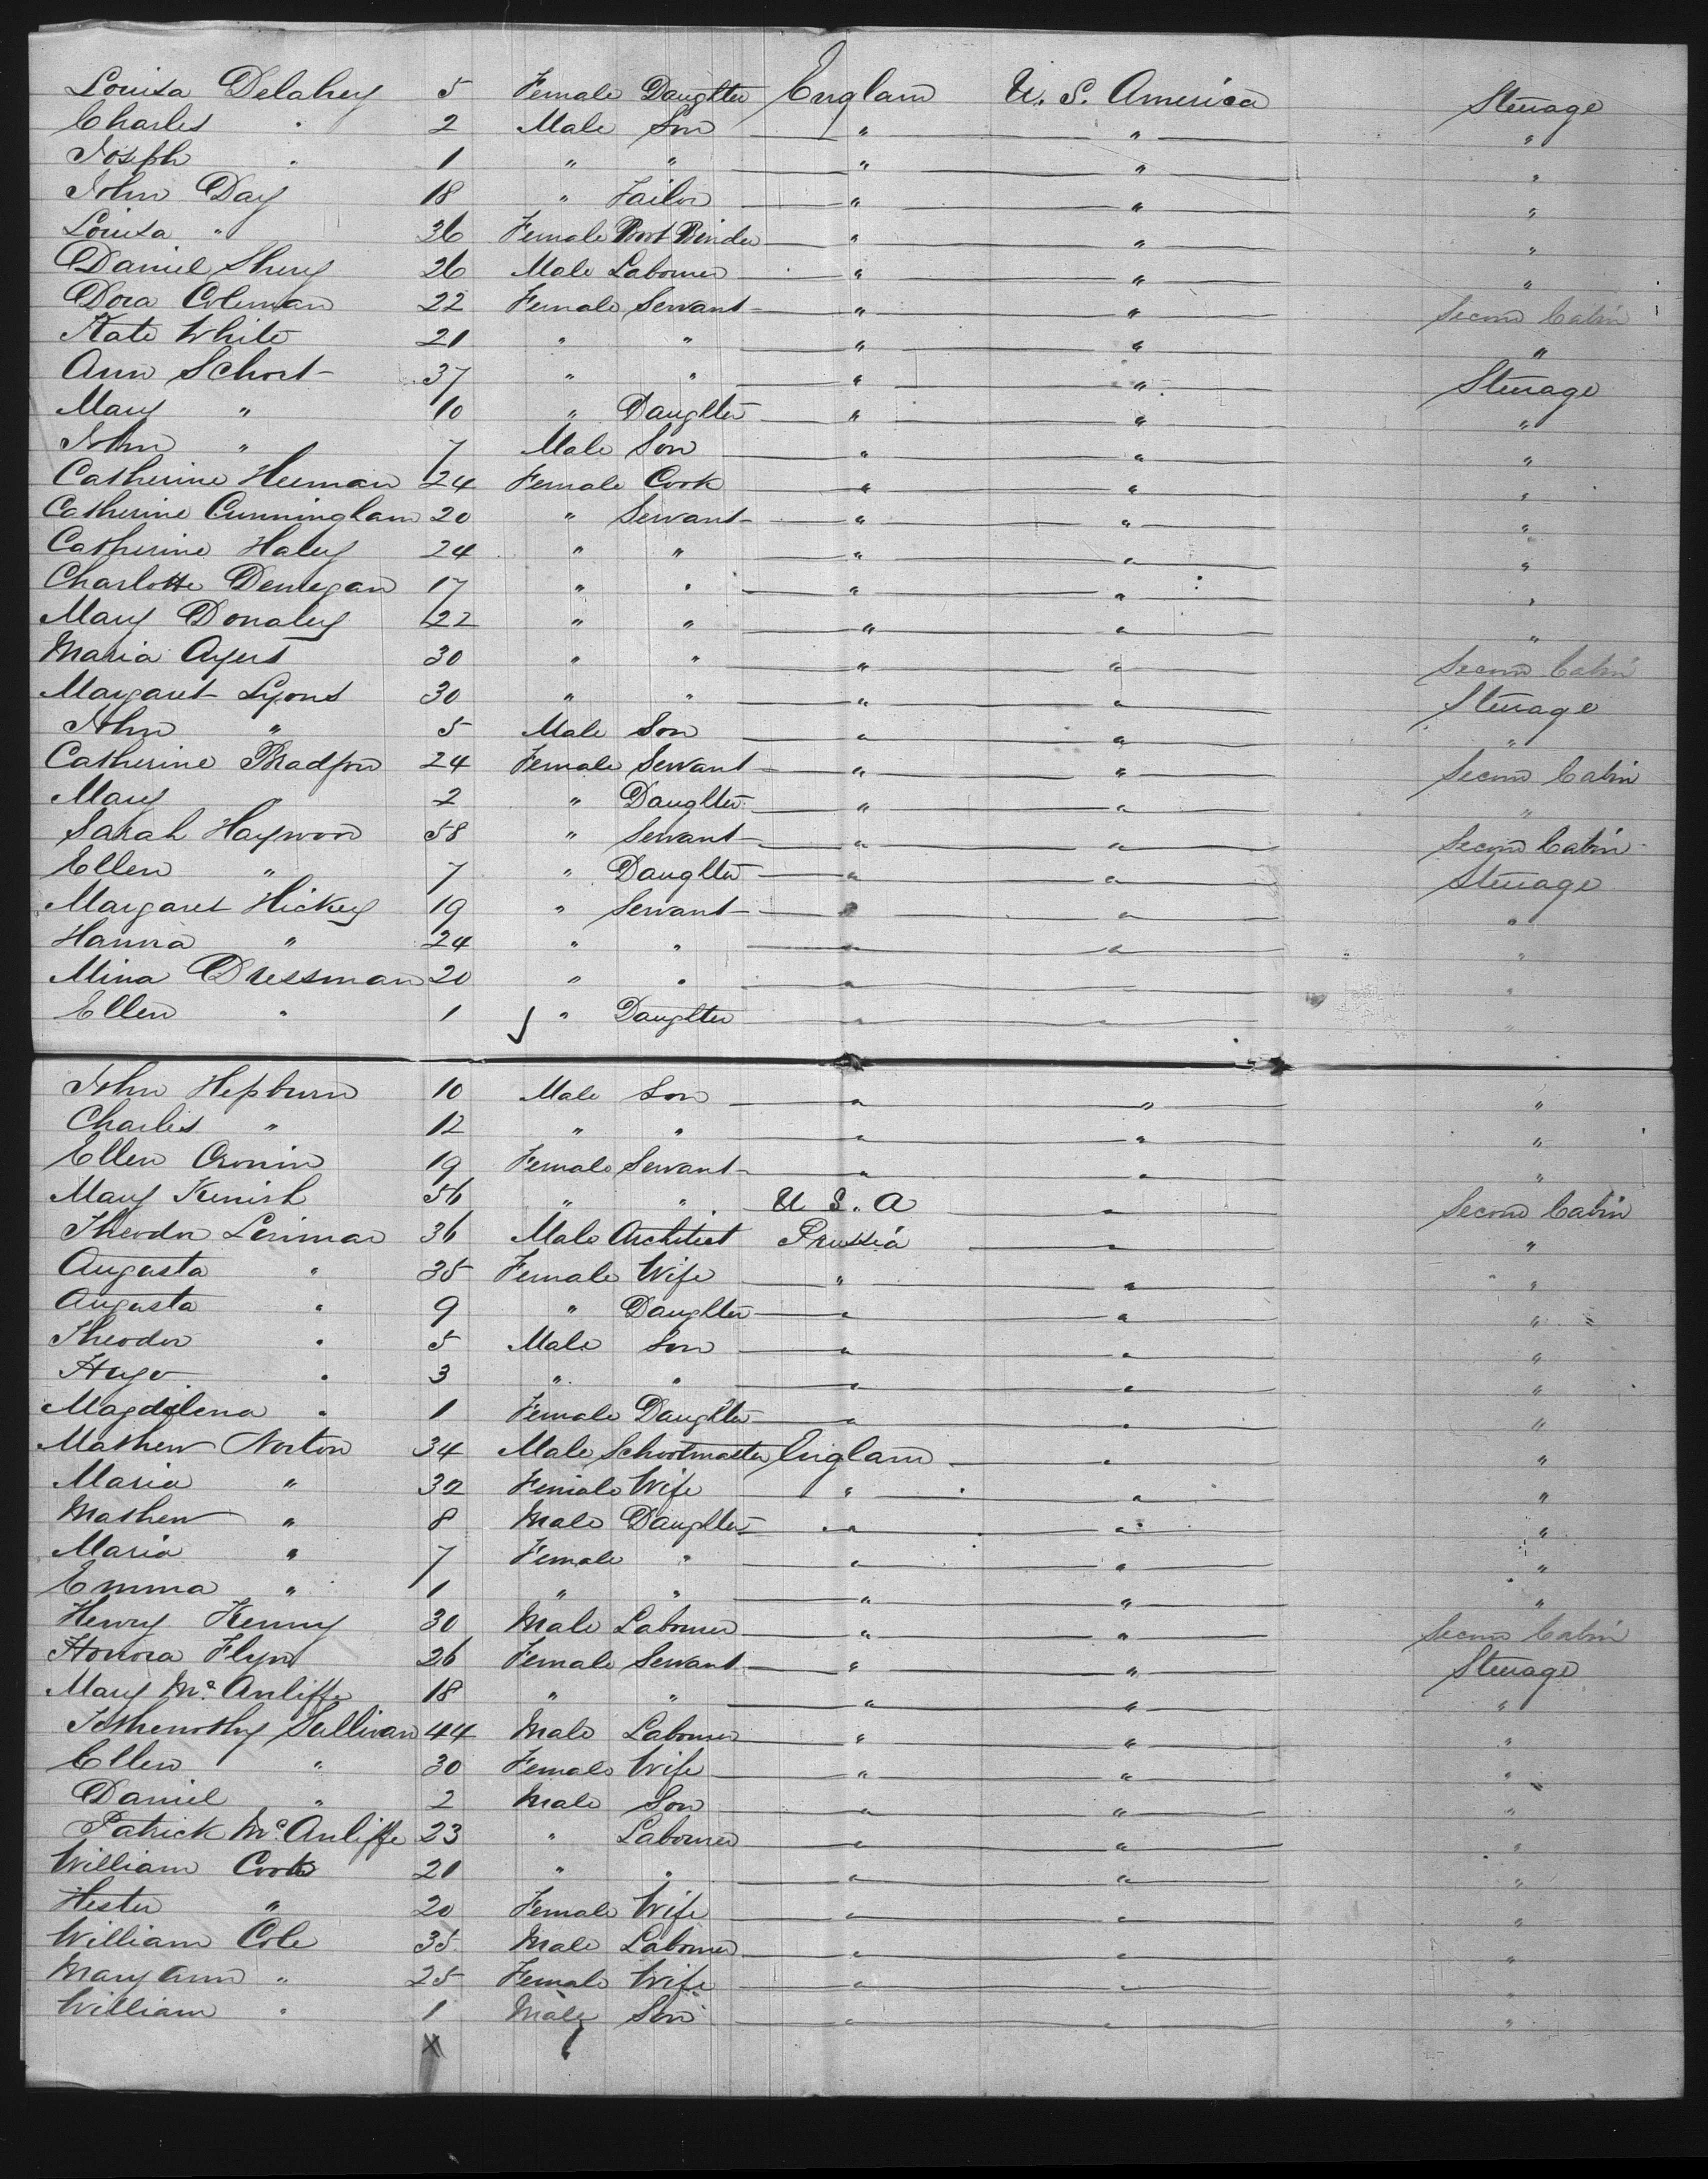 Louisa Delahey 5 Female Daughter England U. S. America Steerage
Charles " 2 Male Son " " "
Joseph " 1 " " " " "
John Day 18 " Tailor " " "
Louisa " 36 Female Boot Binder " " "
Daniel 26 Male Labourer " " "
Dora Coleman 22 Female Servant " " Second Cabin
Kate White 21 " " " " "
Ann Schort 37 " " " " Steerage
Mary " 10 " Daughter " " "
John " 7 Male Son " " "
Catherine Heeman 24 Female Cook " " "
Catherine Cunningham 20 " Servant " " "
Catherine Haley 24 " " " " "
Charlotte Dennegan 17 " " " " "
Mary Donaley 22 " " " " "
Maria Ayers 30 " " " " Second Cabin
Margaret Lyons 30 " " " " Steerage
John " 5 Male Son " " "
Catherine Bradford 24 Female Servant " " Second Cabin
Mary " 2 " Daughter " " "
Sarah Haywood 58 " Servant " " Second Cabin
Ellen " 7 " Daughter " " Steerage
Margaret Hickey 19 " Servant " " "
Hanna " 24 " " " " "
Mina Dressman 20 " " " "
Ellen " 1 " Daughter " " "
John Hepburn 10 Male Son " " "
Charles " 12 " " " " "
Ellen Cronin 19 Female Servant " " "
Mary Kenish 56 " " U S. A " Second Cabin
Theodor 36 Male Architect Prussia " "
Augusta " 35 Female Wife " " "
Augusta " 9 " Daughter " " "
Theodor " 5 Male Son " " "
Hugo " 3 " " " " "
Magdalena " 1 Female Daughter " " "
Mathew Norton 34 Male Schoolmaster England " "
Maria " 32 Female Wife " " "
Mathew " 8 Male Daughter " " "
Maria " 7 Female " " " "
Emma " 1 " " " " "
Henry Kenny 30 Male Labourer " " Second Cabin
Honora Flyn 26 Female Servant " " Steerage
Mary Mc. Auliffe 18 " " " " "
Sullivan 44 Male Labourer " " "
Ellen " 30 Female Wife " " "
Daniel " 2 Male Son " " "
Patrick Mc. Auliffe 23 " Labourer " " "
William Cook 21 " " " " "
Hester " 20 Female Wife " " "
William Cole 35 Male Labourer " " "
Mary Ann " 25 Female Wife " " "
William " 1 Male Son " " "